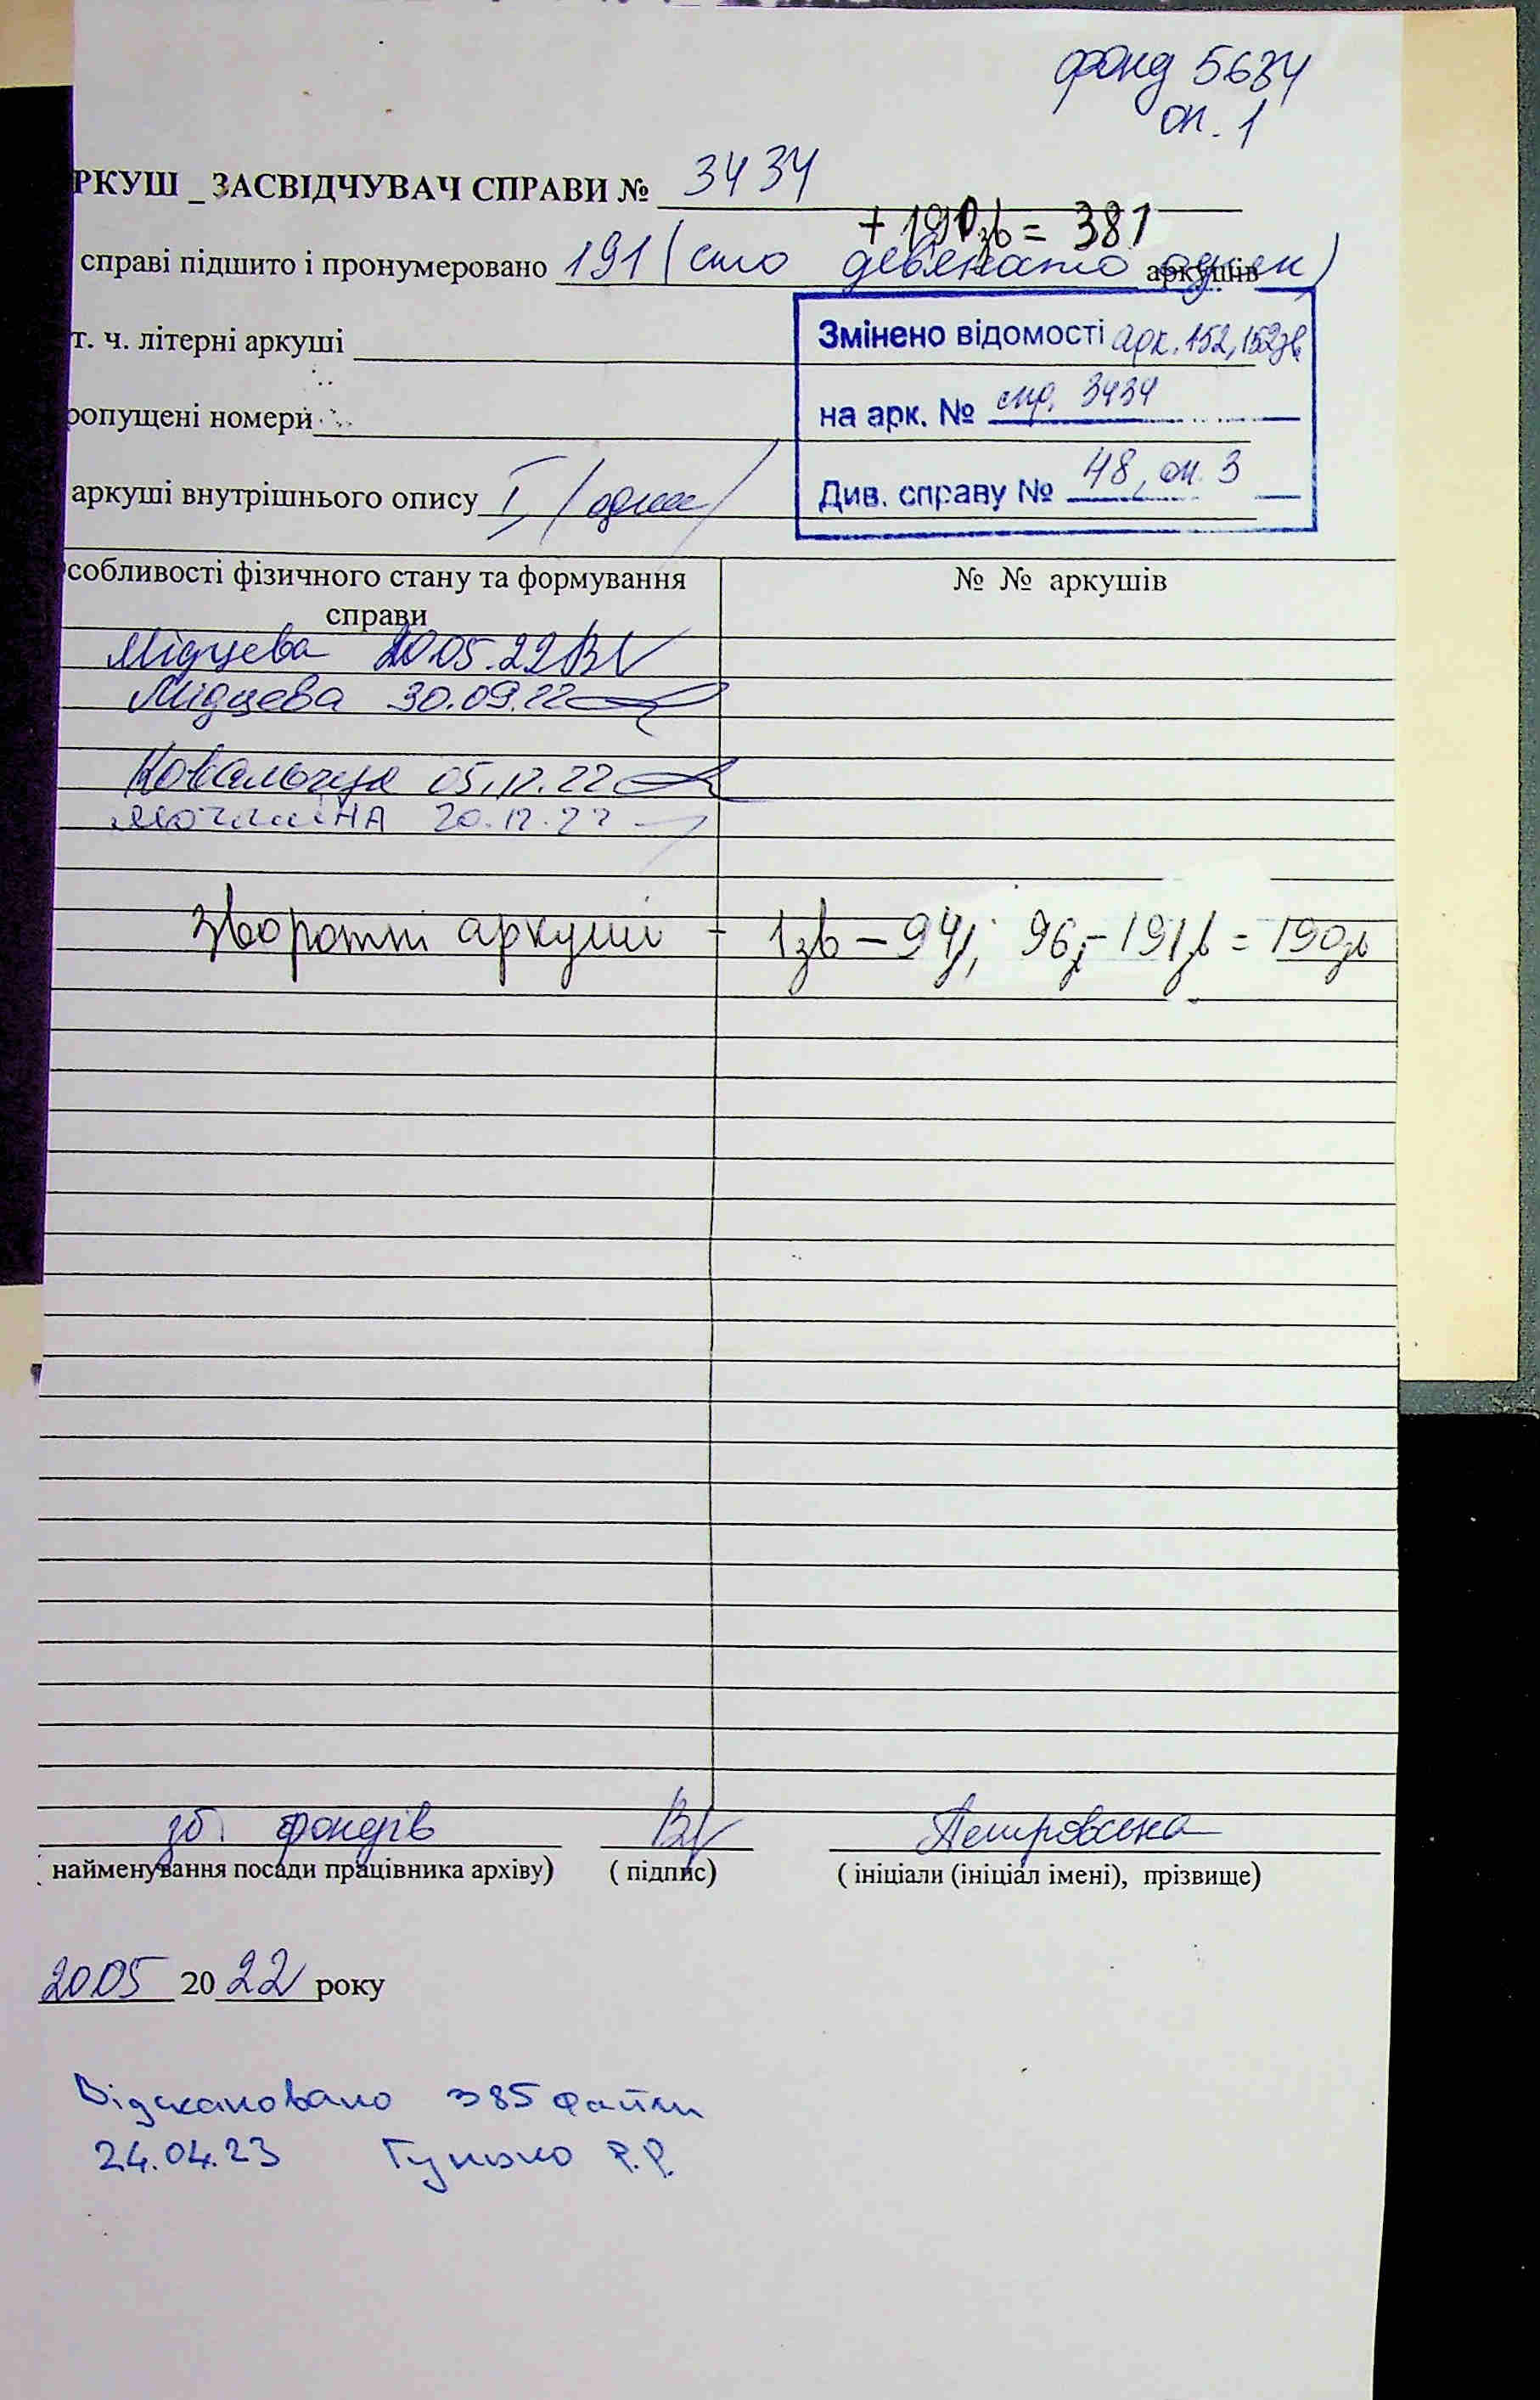 фонд 5634
оп. 1
РКУШ _ ЗАСВІДЧУВАЧ СПРАВИ № 3434
+ 190зв = 381
справі підшито і пронумеровано 191 (сто девʼяносто один) аркушів
т. ч. літерні аркуші
Змінено відомості арк. 152, 152зв
на арк. № спр. 3434
Див. справу № 48, оп. 3
ропущені номери
аркуші внутрішнього опису I /один/
собливості фізичного стану та формування справи
№ № аркушів
Мідцева 20.05.22
Мідцева 30.09.22
Ковальчук 05.12.22
20.12.22
зворотні аркуші - 1зв – 94; 96 – 191зв = 190зв
зб. фондів
Петровська
найменування посади працівника архіву)
( підпис)
( ініціали (ініціал імені), прізвище)
20.05 20 22 року
Відскановано 385 файли
24.04.23 Гунько Р.Р.